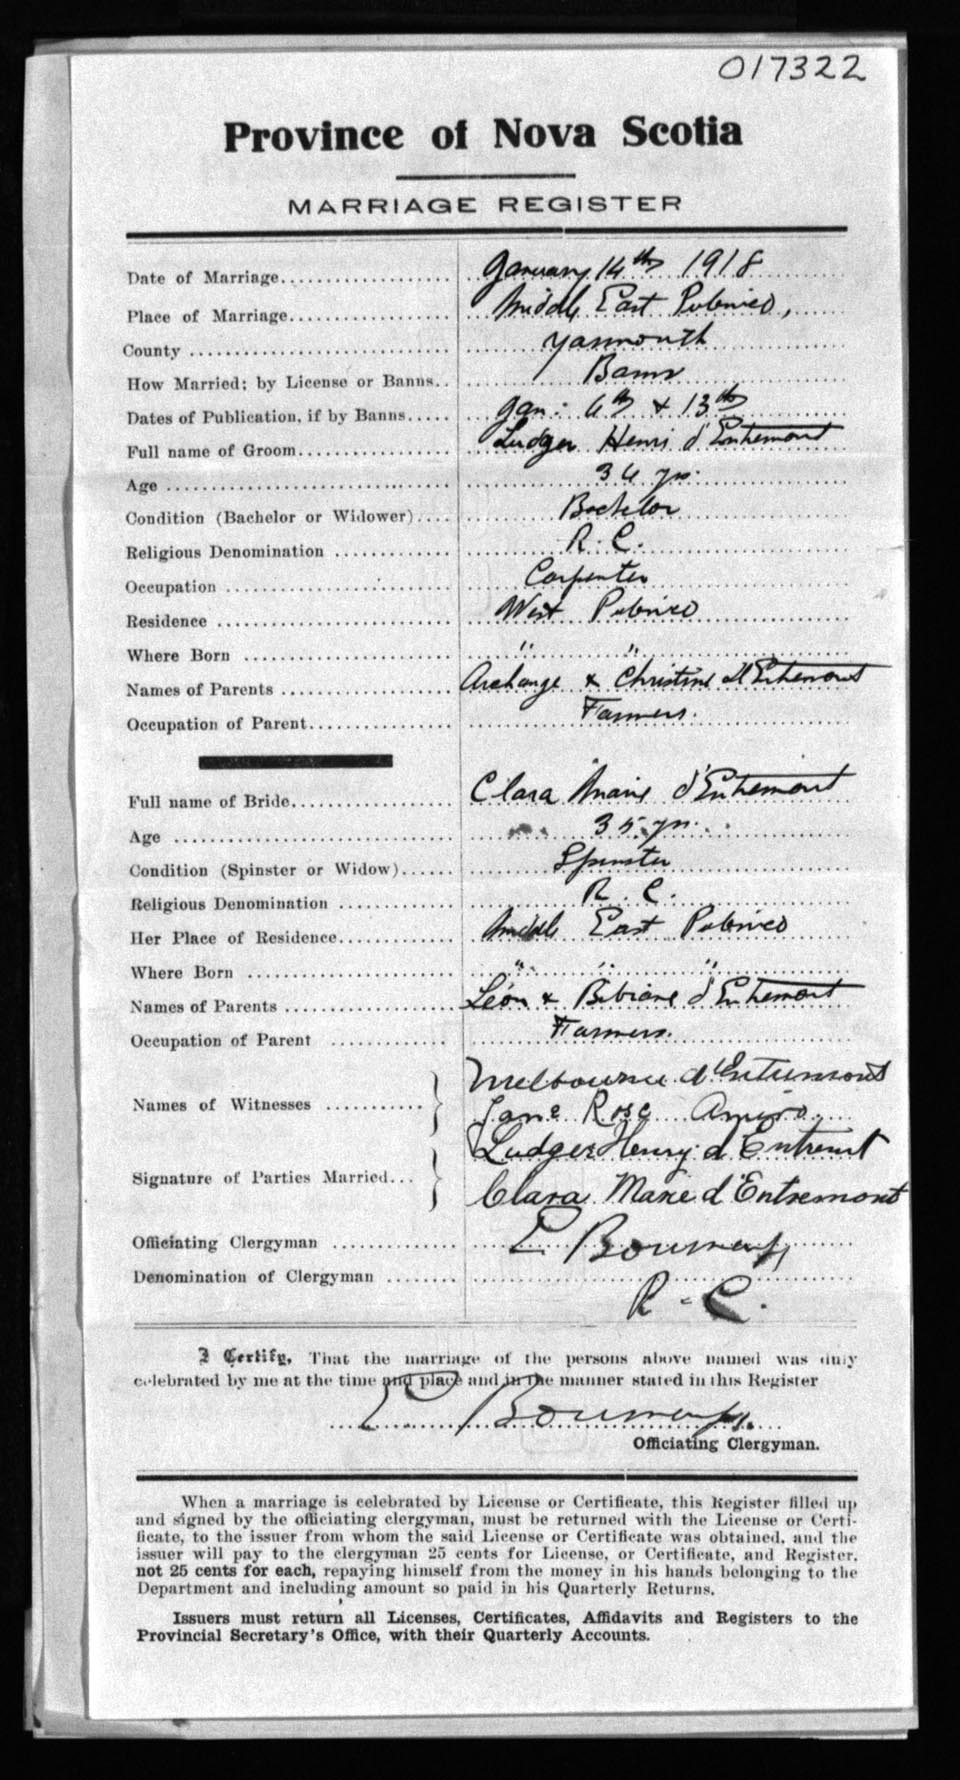 017322
Province of Nova Scotia
MARRIAGE REGISTER
Date of Marriage January 14th 1918
Place of Marriage Middle East Pubnico,
County Yarmouth
How Married; by License or Banns Banns
Dates of Publication, if by Banns Jan: 6th & 13th
Full name of Groom Ludger Henri d'Entremont
Age 36 yrs.
Condition (Bachelor or Widower) Bachelor
Religious Denomination R. C.
Occupation Carpenter
Residence West Pubnico
Where Born " "
Names of Parents Archange & Christine d'Entremont
Occupation of Parent Farmers.
Full name of Bride Clara Marie d'Entremont
Age 35 yrs.
Condition (Spinster or Widow) Spinster
Religious Denomination R. C.
Her Place of Residence Middle East Pubnico
Where Born " " "
Names of Parents Léon & Bibiane d'Entremont
Occupation of Parent Farmers.
Names of Witnesses } Melbourne d'Entremont
Jane Rose Amiro
Signature of Parties Married } Ludger Henry d'Entremont
Clara Marie d'Entremont
Officiating Clergyman E
Denomination of Clergyman R-C.
I Certify, That the marriage of the persons above named was duly
celebrated by me at the time and place and in the manner stated in this Register
E
Officiating Clergyman.
When a marriage is celebrated by License or Certificate, this Register filled up
and signed by the officiating clergyman, must be returned with the License or Certi-
ficate, to the issuer from whom the said License or Certificate was obtained, and the
issuer will pay to the clergyman 25 cents for License, or Certificate, and Register,
not 25 cents for each, repaying himself from the money in his hands belonging to the
Department and including amount so paid in his Quarterly Returns.
Issuers must return all Licenses, Certificates, Affidavits and Registers to the
Provincial Secretary's Office, with their Quarterly Accounts.